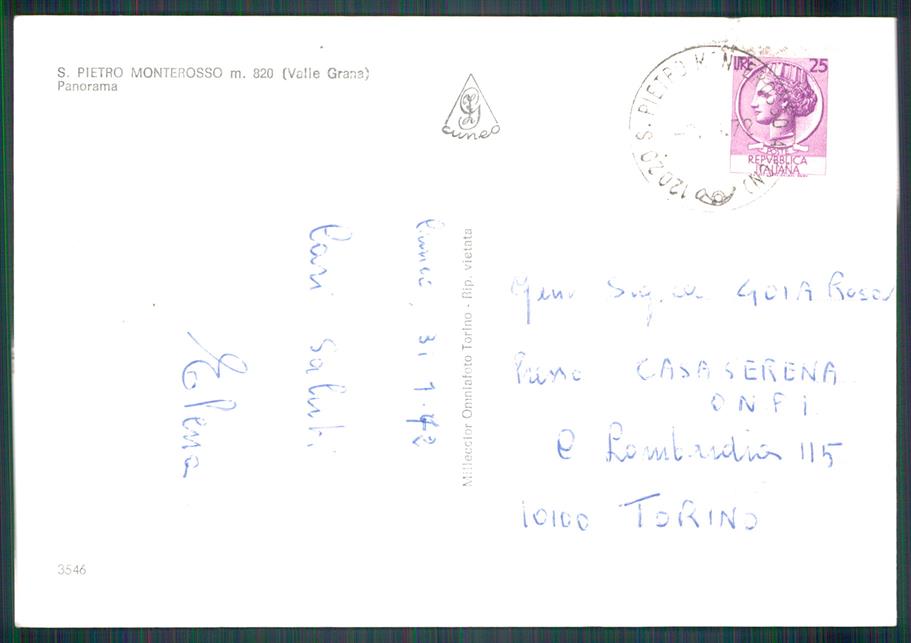 S. PIETRO MONTEROSSO m. 820 (Valle Grana)
Panorama
cuneo
12020 S. PIETRO MONTEROSSO
LIRE 25
POSTE
REPVBBLICA
ITALIANA
Cuneo, 31.7.72
Cari saluti
Elena
Milleccior Omniafoto Torino - Rip. vietata
Gent Sig.ra GOIA Rosa
Presso CASA SERENA
ONPI
C Lombardia 115
10100 TORINO
3546